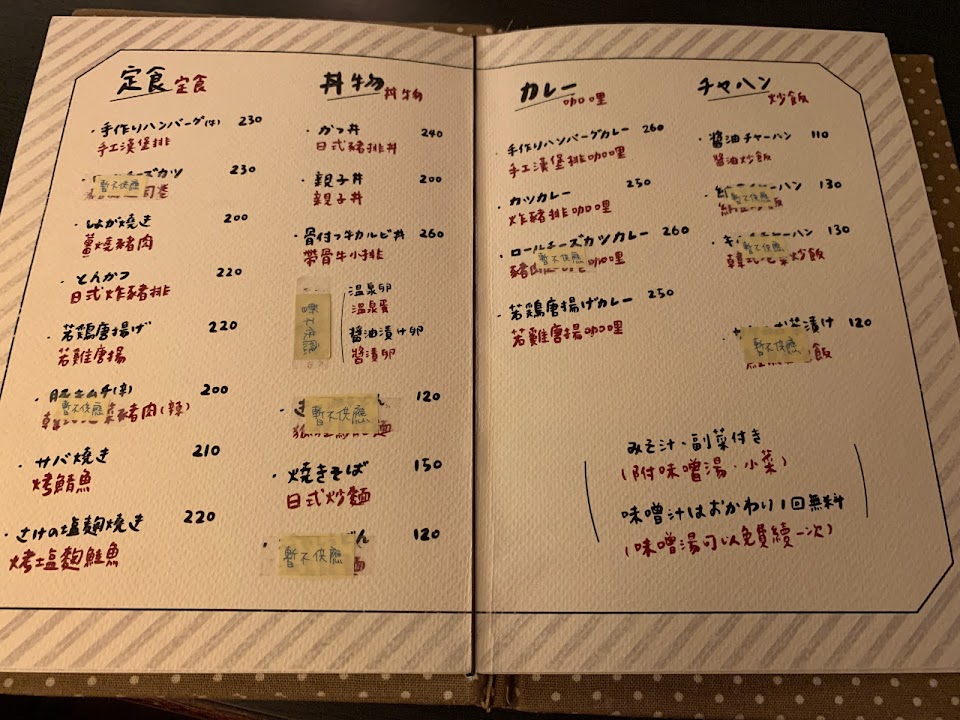 定食 定食
・手作りハンバーグ(牛) 230
手工漢堡排
チーズカツ 230
暫不供應
・しょが焼き 200
薑燒豬肉
・とんかつ 220
日式炸豬排
・若鶏唐揚げ 220
若雞唐揚
キムチ(辛) 200
暫不供應 豬肉(辣)
・サバ焼き 210
烤鯖魚
・さけの塩麹焼き 220
烤塩麴鮭魚
丼物 丼物
・かつ丼 240
日式豬排丼
・親子丼 200
親子丼
・骨付っ牛カルビ丼 260
帶骨牛小排
暫不供應
温泉卵
温泉蛋
醤油漬け卵
醬漬卵
120
暫不供應 麺
・焼きそば 150
日式炒麵
120
暫不供應
カレー 咖哩
・手作りハンバーグカレー 260
手工漢堡排咖哩
・カツカレー 250
炸豬排咖哩
・ロールチーズカツカレー 260
暫不供應 咖哩
・若鶏唐揚げカレー 250
若雞唐揚咖哩
チャハン 炒飯
・醤油チャーハン 110
醬油炒飯
ーハン 130
暫不供應 飯
ーハン 130
暫不供應 炒飯
茶漬け 120
暫不供應 飯
みそ汁・副菜付き
(附味噌湯・小菜)
味噌汁はおかわり1回無料
(味噌湯可以免費續一次)